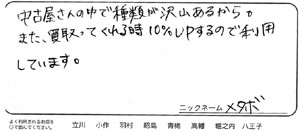 中古屋さんの中で種類が沢山あるから。
また、買取ってくれる時10%UPするので利用
しています。
ニックネーム メタボ
よく利用されるお店を
○で囲んでください。
立川 小作 羽村 昭島 青梅 高幡 堀之内 八王子